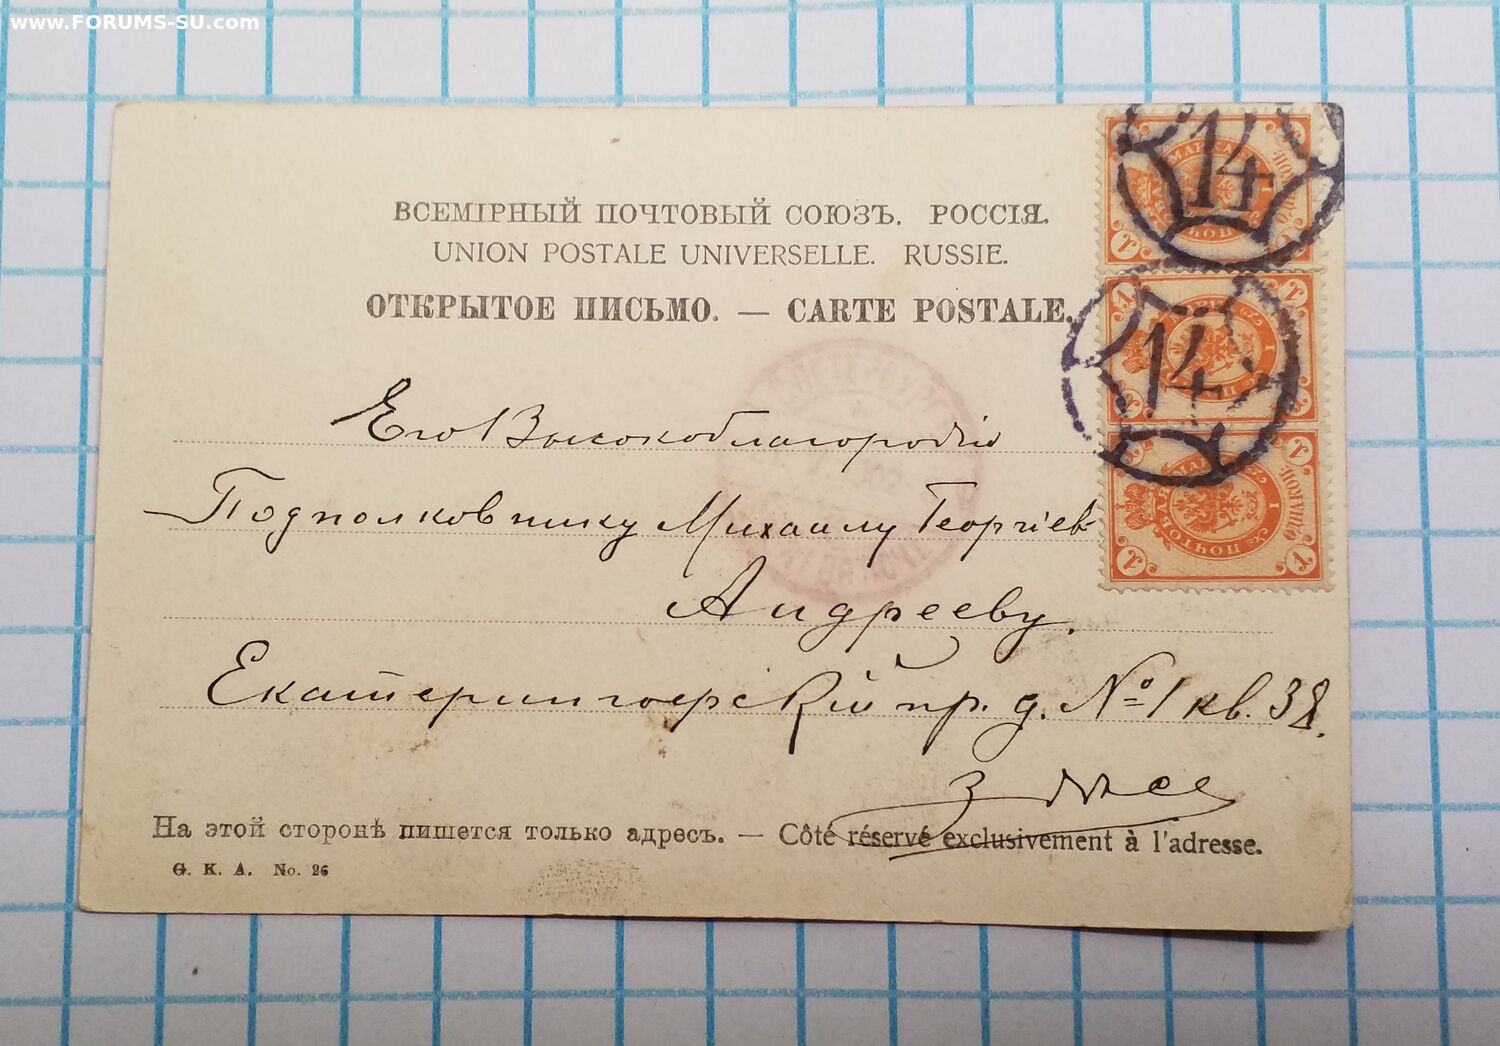 www.FORUMS-SU.com
ВСЕМІРНЫЙ ПОЧТОВЫЙ СОЮЗЪ. РОССІЯ.
UNION POSTALE UNIVERSELLE. RUSSIE.
ОТКРЫТОЕ ПИСЬМО. — CARTE POSTALE.
14
14
Его Высокоблагородію
Подполковнику Михаилу Георгіев
Андрееву.
Екатерингофскій пр. д. № 1 кв. 38.
Здѣсь
На этой сторонѣ пишется только адресъ. — Côté réservé exclusivement à l'adresse.
G. K. A. No. 26